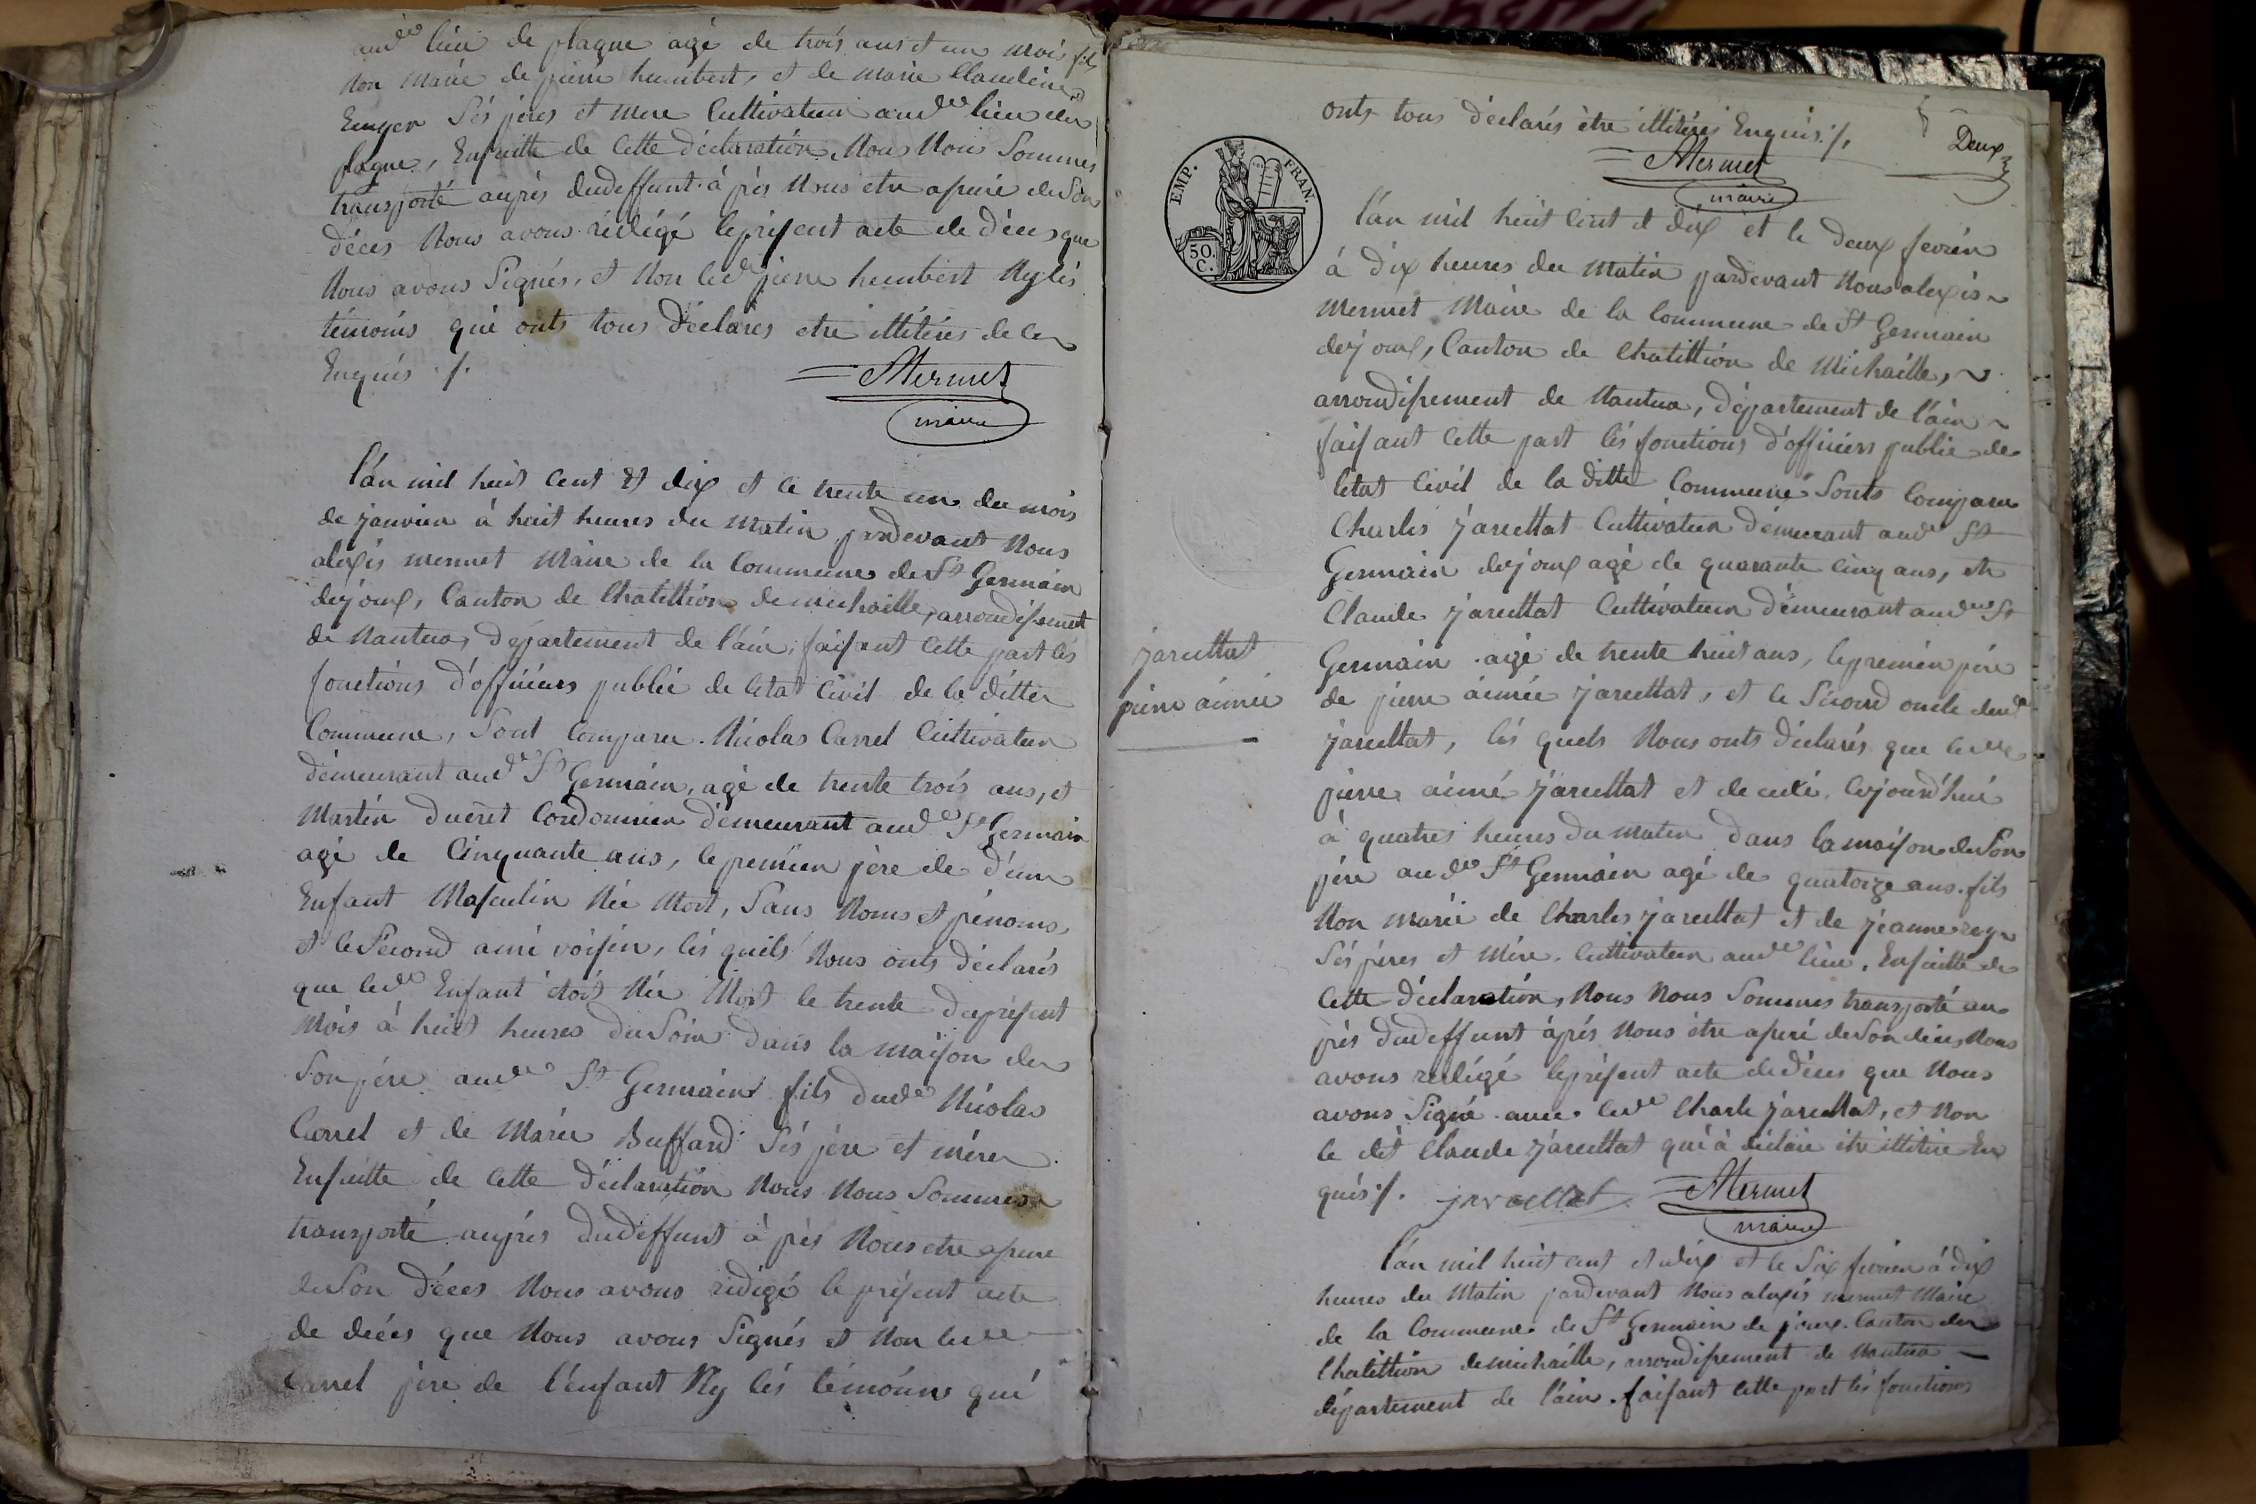 aud.e lieu de plagne agé de trois ans et un mois fils
Non Marié de pierre humbert, et de Marie Claudine
Emyon Sés péres et mere Cultivateur aud.ee lieu de
plagne, Ensuitte de Cette déclaration Nous Nous Sommes
transporté auprés dudeffunt à prés Nous etre assuré de Son
déces Nous avons rédigé leprésent acte de déces que
Nous avons Signés, et Non led.e pierre humbert Ny lés
témoins qui onts tous déclarés etre illitérés de ce
Enquis ./.
AMermet
maire
l'an mil huit Cent et dix et le trente un du mois
de janvier à huit heures du Matin pardevant Nous
alexis mermet Maire de la Commune de St Germain
dejoux, Canton de Chatillion de michaille, arrondissement
de Nantua, département de l'ain, faisant Cette part lés
fonctions d'officiers publié de létat Civil de la ditte
Commune, Sont Comparu. Nicolas Carrel Cultivateur
démeurant aud.e St Germain, agé de trente trois ans, et
Martin Ducret Cordonnier démeurant aud.e St Germain
agé de Cinquante ans, le premier pére de d'un
Enfant Masculin Née Mort, Sans Noms et prénoms,
et le Sécond ami voisin, lés quels Nous onts déclarés
que led.e Enfant étoit Née Mort le trente du présent
Mois à huit heures du Soir dans la maison de
Son pére aud.e St Germain fils dud.e Nicolas
Carrel et de Marie Buffard Sés pére et mére
Ensuitte de Cette déclaration Nous Nous Sommes
transporté auprés dudeffunt à prés Nous etre assuré
de Son déces Nous avons rédigé le présent acte
de décés que Nous avons Signés et Non led.e
Carrel pére de l'énfant Ny lés témoins qui
onts tous déclarés être illitérés Enquis ./.
Deux
AMermet
maire
EMP. FRAN.
50. C.
l'an mil huit Cent et dix et le Deux fevrier
à dix heures du Matin pardevant Nous alexis
Mermet Maire de la Commune de St Germain
dejoux, Canton de Chatillion de Michaille,
arrondissement de Nantua, département de l'ain
faisant Cette part lés fonctions d'officiers publié de
létat Civil de la ditte Commune Sonts Comparu
Charles jarcellat Cultivateur démeurant aud.e St
Germain dejoux agé de quarante cinq ans, et
Claude jarcellat Cultivateur démeurant aud.e St
Germain agé de trente huit ans, le premier pére
de pierre aimée jarcellat, et le Sécond oncle dud.e
jarcellat, lés quels Nous onts déclarés que led.e
pierre aimé jarcellat et décédé. Cejourd'hui
à quatres heures du matin dans la maison de Son
pére aud.e St Germain agé de quatorze ans. fils
Non marié de Charles jarcellat et de jeanne
Sés péres et Mére. Cultivateur aud.e lieu, Ensuitte de
Cette déclaration, Nous Nous Sommes transporté au
prés dudeffunt àprés Nous être assuré de Son déces, Nous
avons rédigé leprésent acte de déces que Nous
avons Signé avec led.e Charle jarcellat, et Non
le dit Claude jarcellat qui à déclaré être illitéré En
quis ./. jarcellat AMermet
maire
jarcellat
pierre aimée
l'an mil huit cent et dix et le Six fevrier à dix
heures du Matin pardevant Nous alexis mermet Maire
de la Commune de St Germain de joux. Canton de
Chatillion demichaille, arrondissement de Nantua
département de l'ain. faisant Cette part lés fonctions